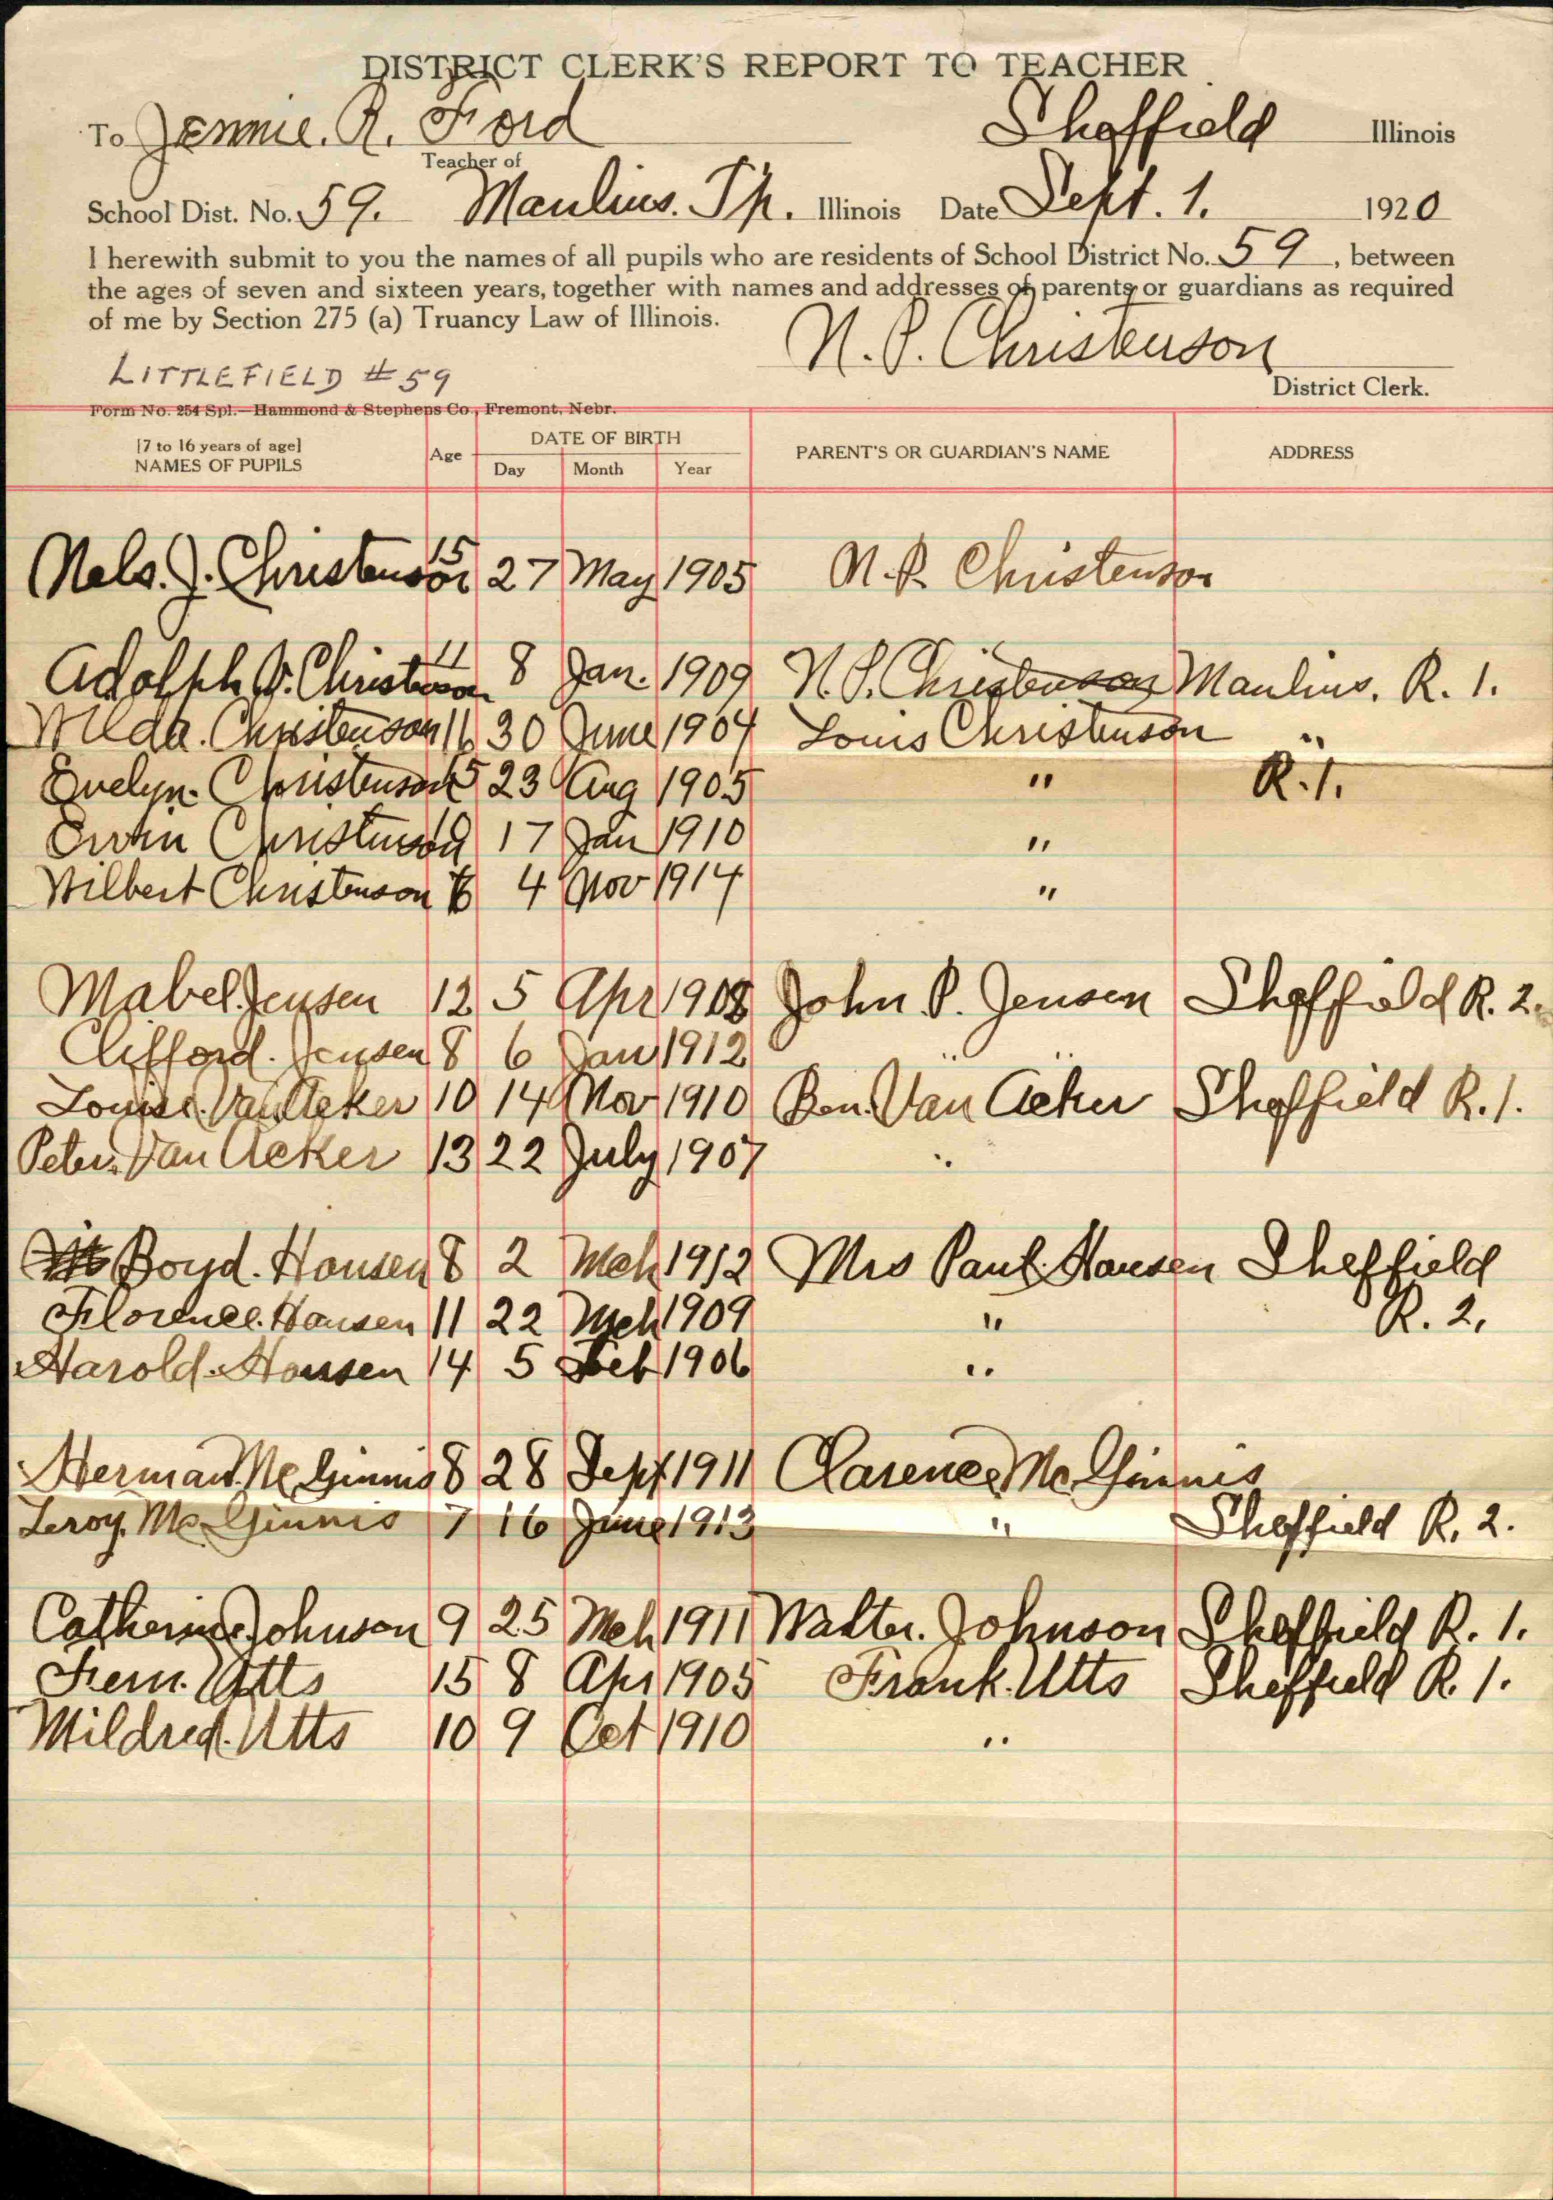 DISTRICT CLERK'S REPORT TO TEACHER
To Jennie. R. Ford Sheffield Illinois
Teacher of
School Dist. No. 59. Manlius. Tp. Illinois Date Sept. 1. 1920
I herewith submit to you the names of all pupils who are residents of School District No. 59, between
the ages of seven and sixteen years, together with names and addresses of parents or guardians as required
of me by Section 275 (a) Truancy Law of Illinois.
N. P. Christenson
LITTLEFIELD # 59
District Clerk.
Form No. 254 Spl.—Hammond & Stephens Co., Fremont, Nebr.
[7 to 16 years of age] NAMES OF PUPILS Age DATE OF BIRTH Day Month Year PARENT'S OR GUARDIAN'S NAME ADDRESS
Nels. J. Christenson 15 27 May 1905 N. P. Christenson
Adolph V. Christenson 11 8 Jan. 1909 N. P. Christenson Manlius. R. 1.
Wilda. Christenson 16 30 June 1904 Louis Christenson "
Evelyn. Christenson 15 23 Aug 1905 " R. 1.
Ervin Christenson 10 17 Jan 1910 "
Wilbert Christenson 6 4 Nov 1914 "
Mabel. Jensen 12 5 Apr 1908 John P. Jensen Sheffield R. 2.
Clifford. Jensen 8 6 Jan 1912 " "
Louise. Van Acker 10 14 Nov 1910 Ben. Van Acker Sheffield R. 1.
Peter. Van Acker 13 22 July 1907 "
Boyd. Hansen 8 2 Mch 1912 Mrs Paul. Hansen Sheffield
Florence. Hansen 11 22 Mch 1909 " R. 2.
Harold. Hansen 14 5 Feb 1906 "
Herman. McGinnis 8 28 Sept 1911 Clarence McGinnis
Leroy. McGinnis 7 16 June 1913 " Sheffield R. 2.
Catherine Johnson 9 25 Mch 1911 Walter. Johnson Sheffield R. 1.
Fern. Utts 15 8 Apr 1905 Frank. Utts Sheffield R. 1.
Mildred. Utts 10 9 Oct 1910 "